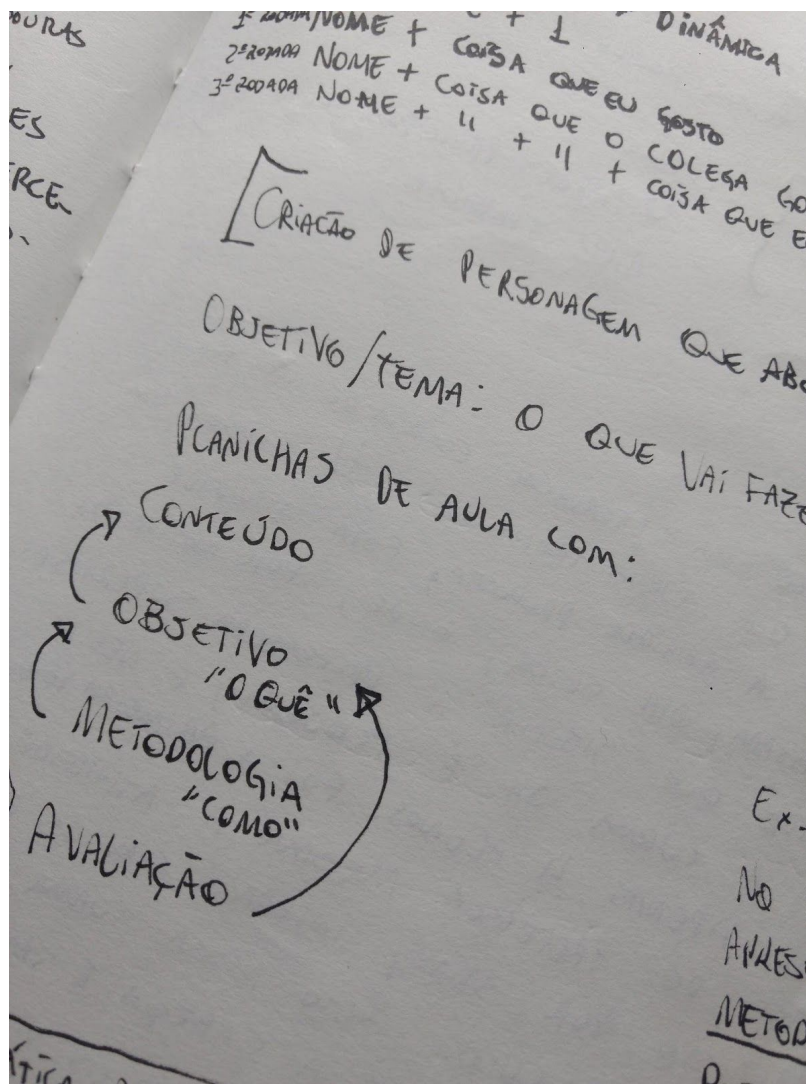 DURAS
ES
RCE
+ 1 DINÂMICA
1ª RODADA NOME + COISA QUE EU GOSTO
2ª RODADA NOME + COISA QUE O COLEGA GO
3ª RODADA NOME + " + " + COISA QUE E
[CRIAÇÃO DE PERSONAGEM QUE ABO
OBJETIVO/TEMA: O QUE VAI FAZE
PLANILHAS DE AULA COM:
CONTEÚDO
OBJETIVO
"O QUÊ"
METODOLOGIA
"COMO"
AVALIAÇÃO
Ex.
NO
APRES
METOD